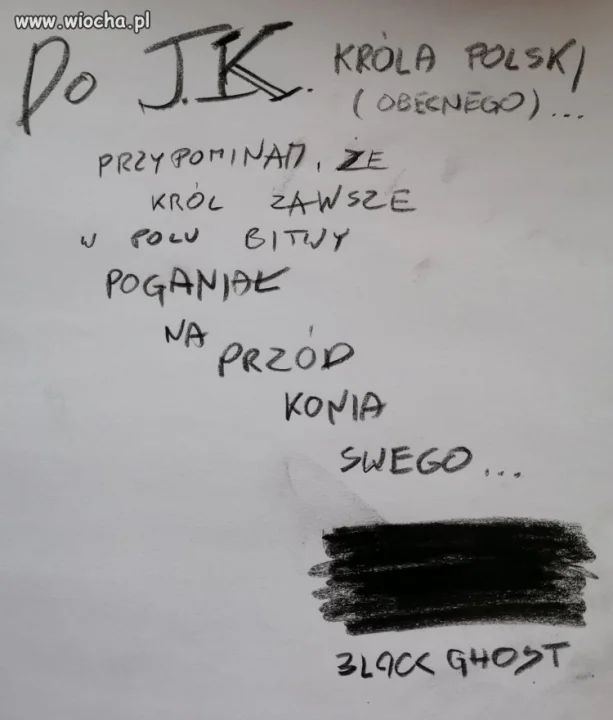 www.wiocha.pl
DO J.K. KRÓLA POLSKI
(OBECNEGO)...
PRZYPOMINAM, ŻE
KRÓL ZAWSZE
W POLU BITWY
POGANIAŁ
NA
PRZÓD
KONIA
SWEGO...
BLACK GHOST